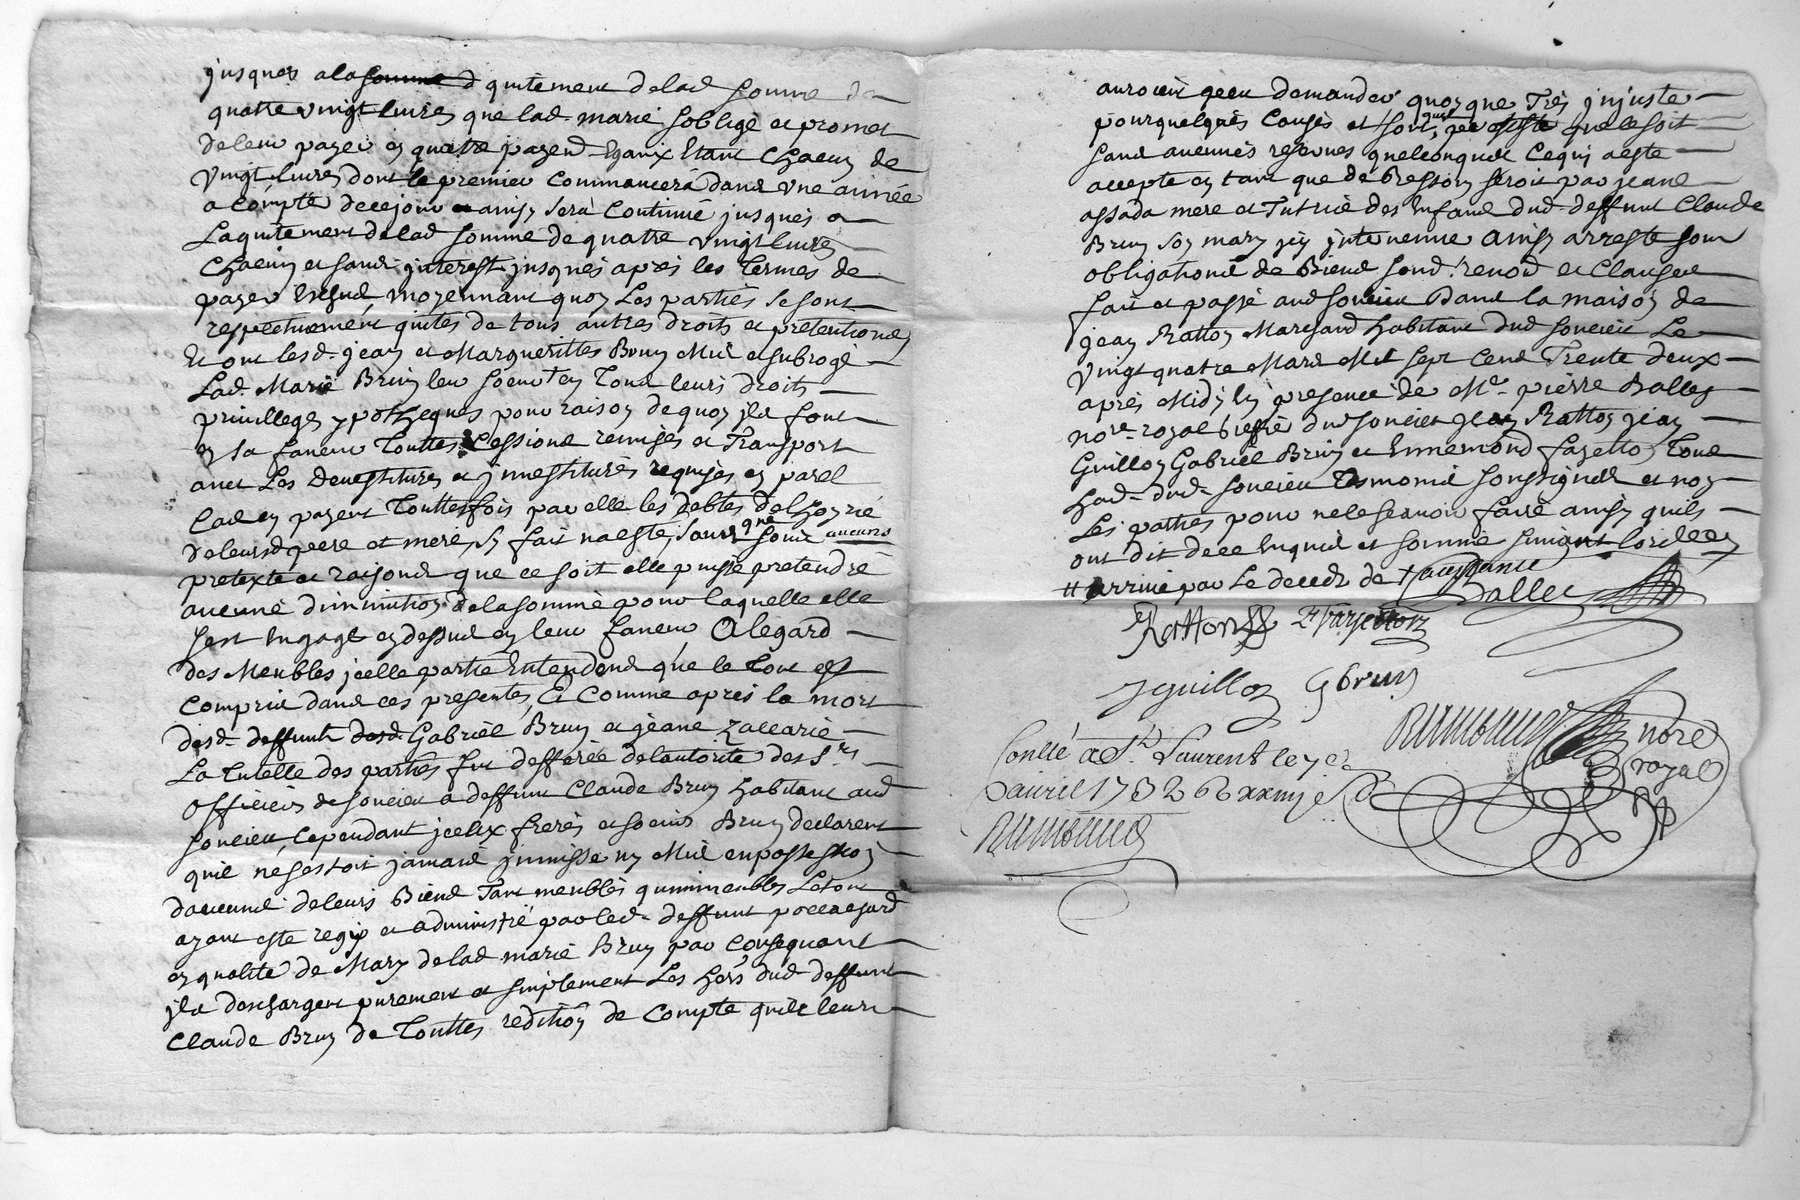 jusques a la somme d quitement de lad somme de
quatre vingt livres que lad. marie soblige et promet
de leur payer en quatre payend Egaux Etant Chacun de
vingt livres dont le premier Commancera dans une année
a compte de ce jour ainsy sera Continué jusques a
Laquitement de lad somme de quatre vingt livres
Chacun et sans interest jusques apres les termes de
payer Escheu, moyennant quoy Les parties se sont
respectivement quites de tous autres droits et pretentions
Et ont lesd. jean et Marguerittes Brun Mis et subrogé
Lad. Marie Brun leur soeur en Tous leurs droits
privilleges ypotheques pour raison de quoy ils font
en sa faveur Touttes Cessions remises et Transport
avec Les devestitures et jnvestitures requises en pareil
Cas en payent Touttesfois par elle les debtes de Lhoyrie
de leursd pere et mere, sy fait na esté, sans que sous aucuns
pretexte et raisons que ce soit elle puisse pretendre
aucune diminution de la somme pour laquelle elle
sest Engagé cy dessus en leur faveur A legard
des Meubles jcelle partie Entendent que le Tout est
Compris dans ces presentes, Et Comme apres la mort
desd. deffunts desd. Gabriel Brun et jeane Zaccarie
La Tutelle des parties fut defferée de lautorite des Srs.
officiers de soucieu a deffunt Claude Brun habitant aud
soucieu, Cependant jceux freres et soeurs Brun declarent
quil ne sestoit jamais jmmisse ny Mis en possession
daucuns de leurs Biens Tant meubles quimmeubles Le tout
ayant esté regis et administré par led. deffunt
en qualite de Mary de lad marie Brun par Consequant
ils deschargent purement et simplement Les hers dud deffunt
Claude Brun de Touttes redition de Compte quils leurs
auroient peu demander quoy que Tres jnjuste
pour quelques Causes et que ce soit
sans aucunes reserves quelconques Ce qui a esté
accepté en tant que de Besson seroit par jeane
assada mere et Tutrice des Enfans dud. deffunt Claude
Brun son mary jcy jntervenue Ainsy arresté sous
obligations de Biens soud. renond et Clauses
fait et passé aud soucieu Dans la maison de
jean Ratton Marchand habitant dud soucieu Le
vingt quatre Mars Mil sept Cens Trente deux
apres Midy En presence de Me. pierre Dalles
nore. royal greffié dud soucieu jean Ratton jean
Guillon Gabriel Brun et Ennemond fayetton Tous
had. dud. soucieu Tesmoins soussignés et non
Les parties pour ne le scavoir faire ainsy quils
ont dit de ce Enquis et sommé suivant lordce
tt arrivé par le deceds de
Dalles
Ratton
jguillon Gbrun
nore
royal
Conllé a St. Laurent le
avril 1732